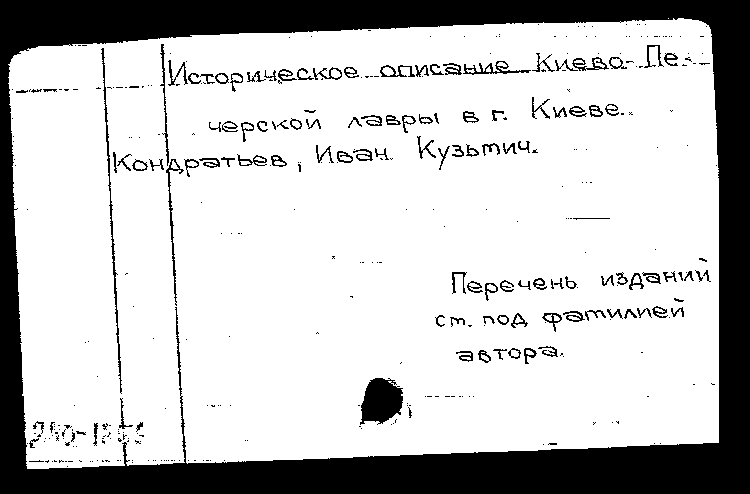 Историческое описание Киево-Пе-
черской лавры в г. Киеве.
Кондратьев, Иван Кузьмич.
Перечень изданий
ст. под фамилией
автора.